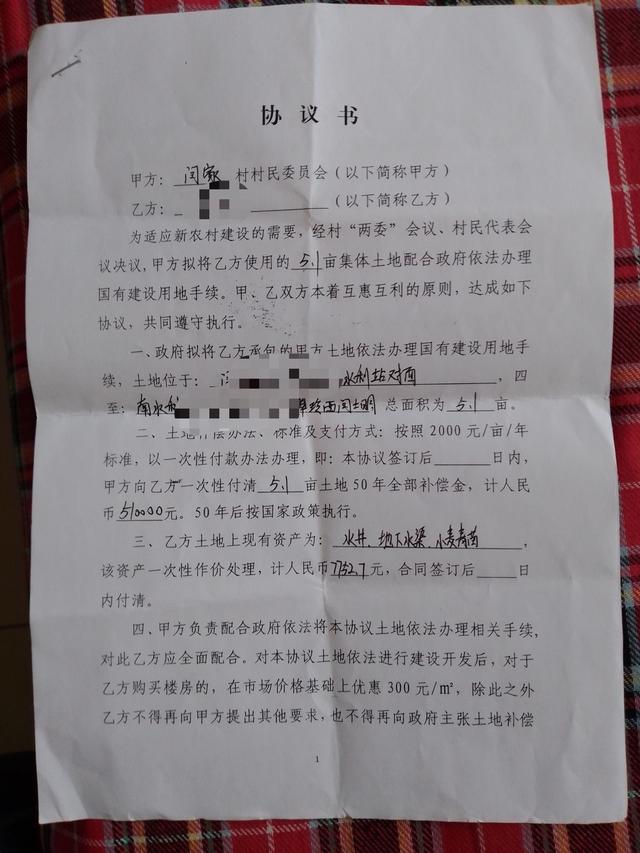 协议书
甲方：闫家 村村民委员会（以下简称甲方）
乙方：（以下简称乙方）
为适应新农村建设的需要，经村“两委”会议、村民代表会
议决议，甲方拟将乙方使用的 5.1 亩集体土地配合政府依法办理
国有建设用地手续。甲、乙双方本着互惠互利的原则，达成如下
协议，共同遵守执行。
一、政府拟将乙方承包的甲方土地依法办理国有建设用地手
续，土地位于：水利站对西，四
至：南水利 西闫士明 总面积为 5.1 亩。
二、土地补偿办法、标准及支付方式：按照 2000 元/亩/年
标准，以一次性付款办法办理，即：本协议签订后 日内，
甲方向乙方一次性付清 5.1 亩土地 50 年全部补偿金，计人民
币 510000 元。50 年后按国家政策执行。
三、乙方土地上现有资产为：水井、地下水渠、小麦青苗，
该资产一次性作价处理，计人民币 77527 元，合同签订后 日
内付清。
四、甲方负责配合政府依法将本协议土地依法办理相关手续，
对此乙方应全面配合。对本协议土地依法进行建设开发后，对于
乙方购买楼房的，在市场价格基础上优惠 300 元/㎡，除此之外
乙方不得再向甲方提出其他要求，也不得再向政府主张土地补偿
1